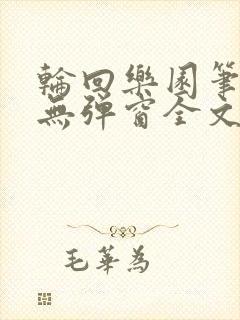 輪回樂園筆
無彈窗全文
毛華為